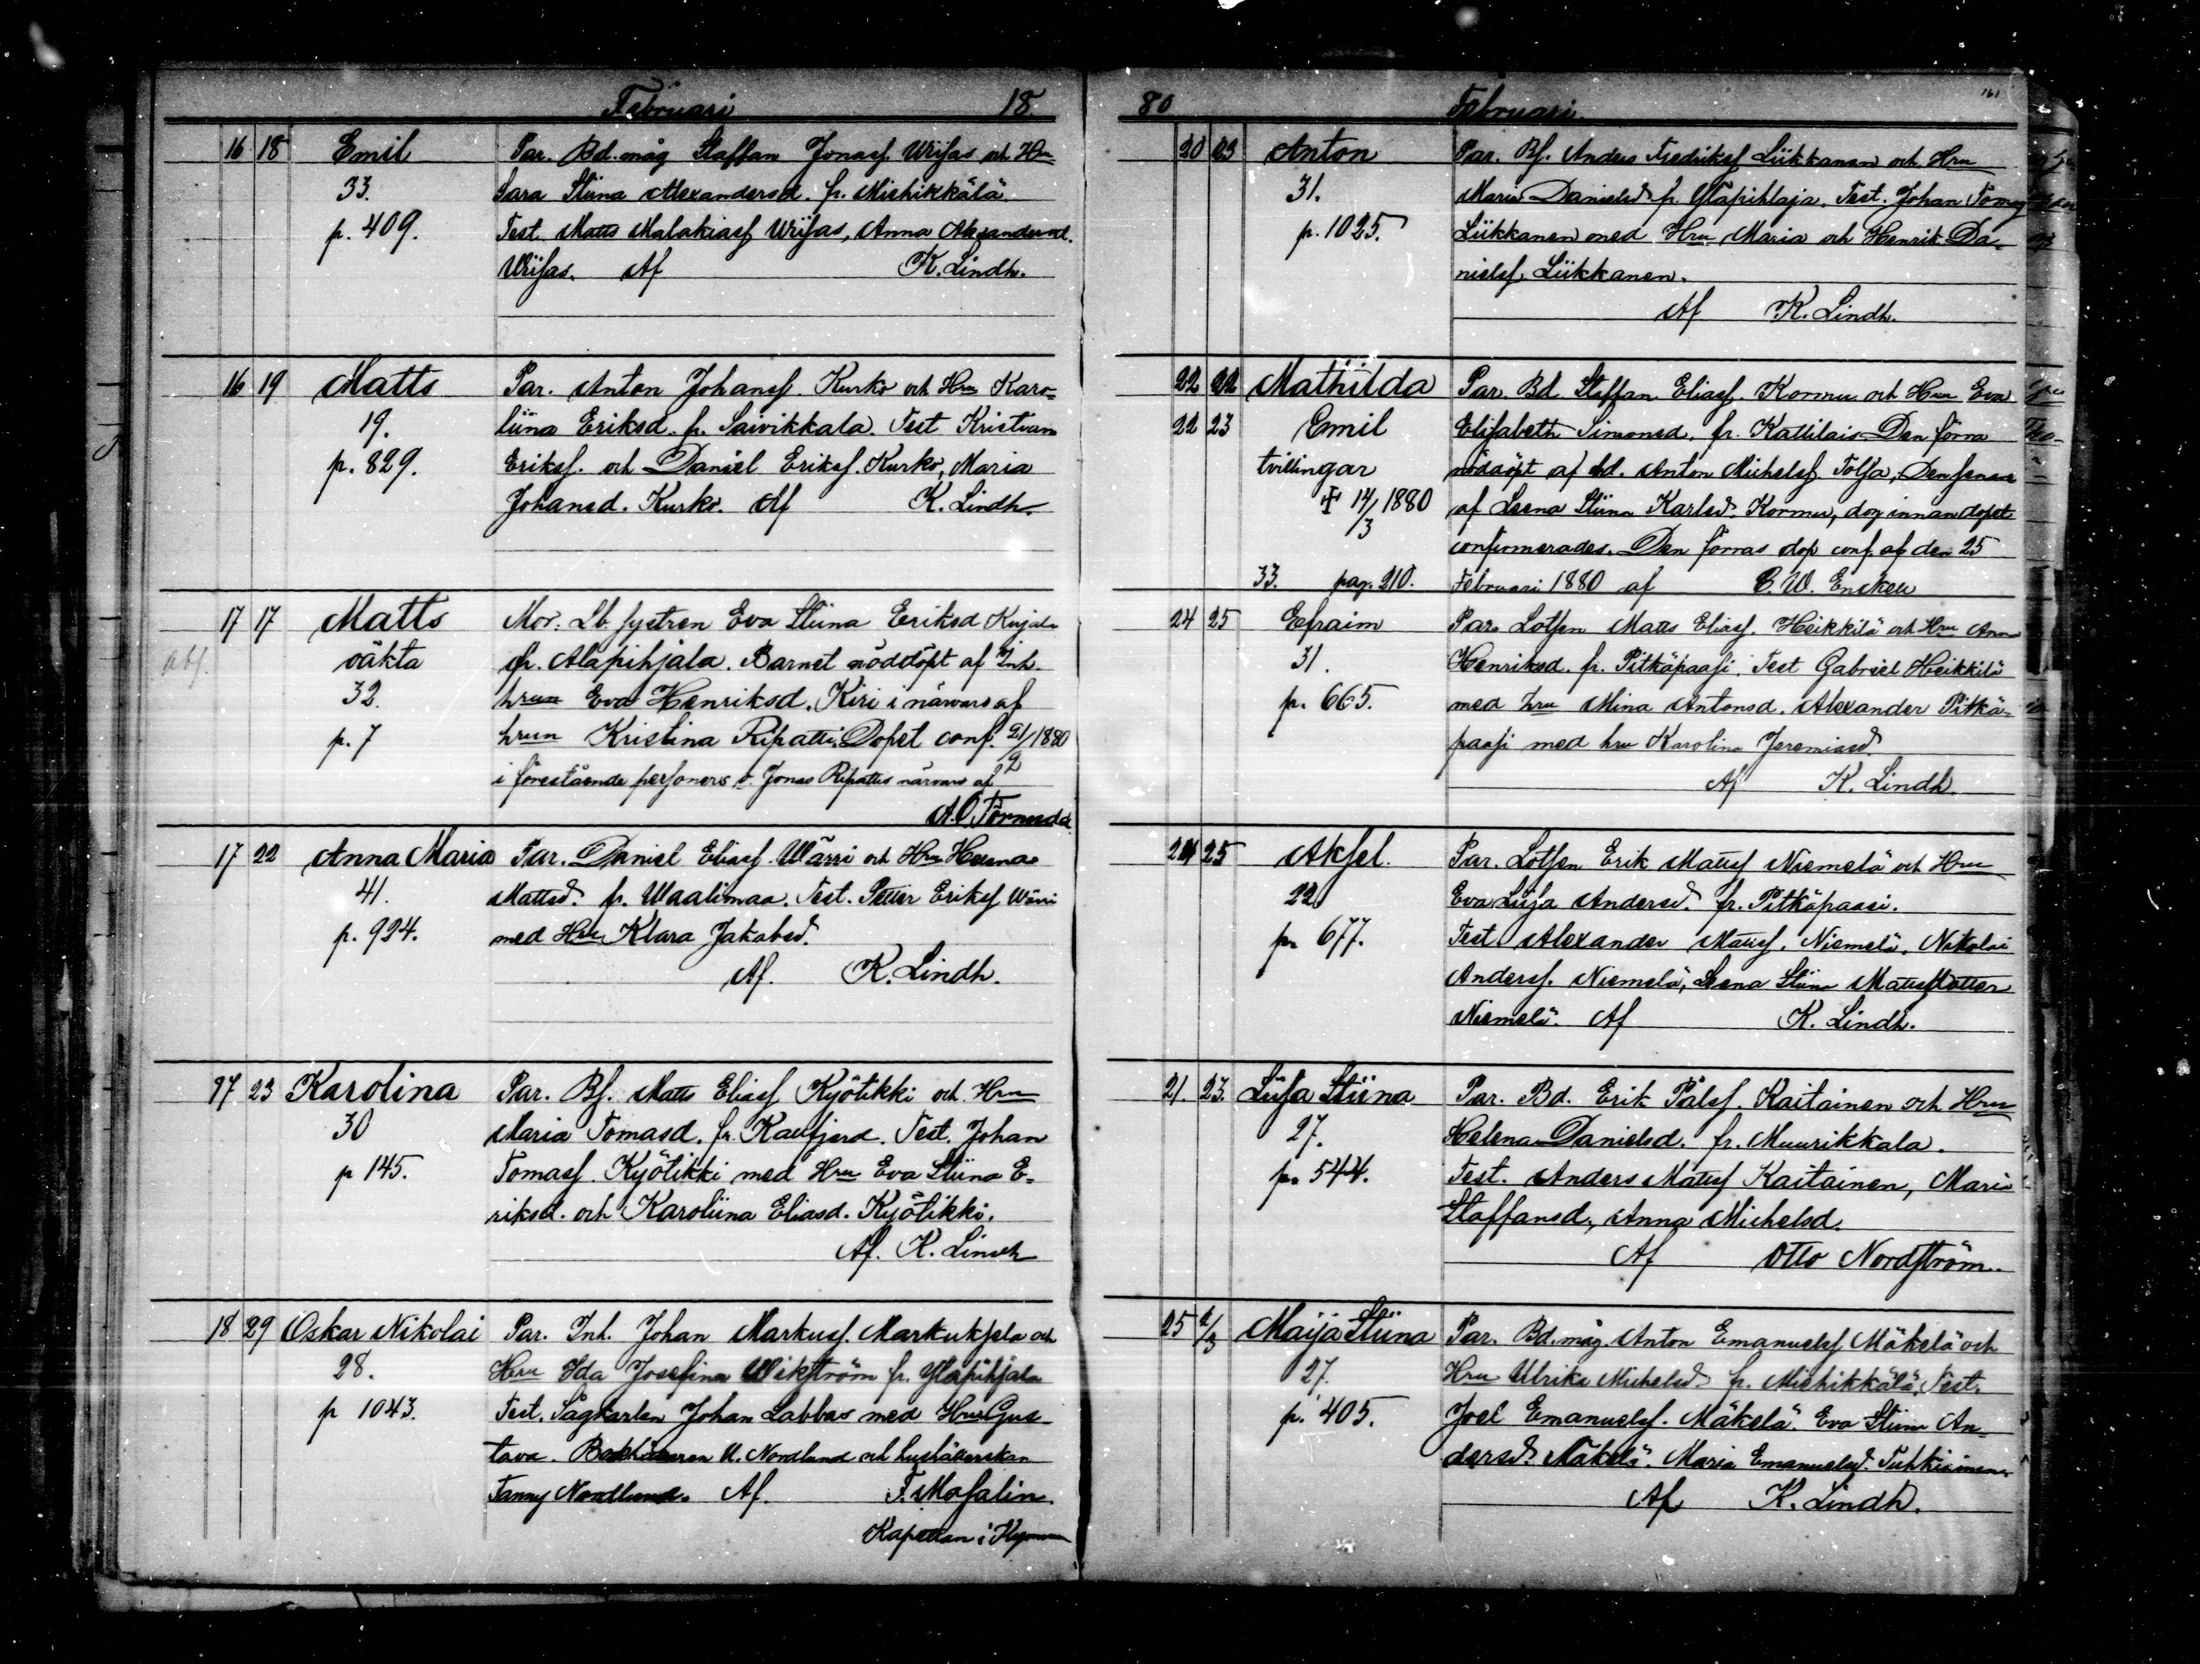 Februari 18
16 18 Emil Par. Bd.måg Staffan Jonasf. Urifas och Hru
33. Sara Stiina Alexandersd. fr. Miehikkälä.
p. 409. Test. Matts Malakiasf Urifas, Anna Alexandersd.
Urifas. Af K. Lindh.
16 19 Matts Par. Anton Johansf. Kurko och Hru Karo-
19. liina Eriksd. fr. Saivikkala. Test Kristian
p. 829. Eriksf. och Daniel Eriksf. Kurko, Maria
Johansd. Kurko. Af K. Lindh.
17 17 Matts Mor. Lb. systren Eva Stiina Eriksd Kujala
oäkta fr. Alapihjala. Barnet nöddöpt af Inh.
32. hrun Eva Henriksd. Kiri i närvaro af
p. 7 hrun Kristina Ripatti. Dopet conf. 21/2 1880
i förestående personers o. Jonas Ripattis närvaro af
A.O. Törnudd.
17 22 Anna Maria Par. Daniel Eliasf. Wärri och Hru Helena
41. Mattsd. fr. Waalimaa. Test. Petter Eriksf Wärri
p. 924. med Hru Klara Jakobsd.
Af. K. Lindh.
17 23 Karolina Par. Bf. Matts Eliasf Kyötikki och Hru
30 Maria Tomasd. fr. Test. Johan
p 145. Tomasf. Kyötikki med Hru Eva Stiina E-
riksd. och Karoliina Eliasd. Kyötikki.
Af. K. Lindh
18 29 Oskar Nikolai Par. Inh. Johan Markusf. Markuksela och
28. Hru Ida Josefina Wikström fr. Yläpihjala
p 1043. Test. Sågkarlen Johan Labbas med Hru Gus-
tava. Bokhållaren U. Nordlund och hushållerskan
Fanny Nordlund. Af. F. Mosalin.
Kapellan i Kymmene
80 Februari. 161
20 23 Anton Par. Bf. Anders Fredriksf Liikkanen och Hru
31. Maria Danielsd fr. Yläpihlaja. Test. Johan Tomasf
p. 1025. Liikkanen med Hru Maria och Henrik Da-
nielsf. Liikkanen.
Af K. Lindh.
22 22 Mathilda Par. Bd. Staffan Eliasf. Kormu och Hru Eva
22 23 Emil Elisabeth Simonsd. fr. Kattilais Den förra
tvillingar nöddöpt af bd. Anton Michelsf Tolsa, Den senare
✝ 14/3 1880 af Leena Stiina Karlsd. Kormu, dog innan dopet
confirmerades. Den förras dop conf. af den 25
33. pag. 210. Februari 1880 af C. W. Enckell
24 25 Efraim Par. Lotsen Matts Eliasf. Heikkilä och Hru Anna
31. Henriksd. fr. Pitkäpaasi. Test Gabriel Heikkilä
p. 665. med hru Mina Antonsd. Alexander Pitkä-
paasi med hru Karolina Jeremiasd.
Af K. Lindh.
24 25 Aksel. Par. Lotsen Erik Mattsf Niemelä och Hru
22 Eva Liisa Andersd. fr. Pitkäpaasi.
p. 677. Test Alexander Mattsf. Niemelä. Nikolai
Andersf. Niemelä, Leena Stiina Mattsdotter
Niemelä. Af K. Lindh.
21. 23. Liisa Stiina Par. Bd. Erik Pålsf. Kaitainen och Hru
27. Helena Danielsd. fr. Muurikkala.
p. 544. Test. Anders Mattsf Kaitainen, Maria
Staffansd, Anna Michelsd.
Af Otto Nordström.
25 2/3 Maija Stiina Par. Bd.måg. Anton Emanuelsf Mäkelä och
27. Hru Ulrika Michelsd fr. Miehikkälä, Test.
p. 405. Joel Emanuelsf. Mäkelä. Eva Stiina An-
dersd. Mäkelä. Maria Emanuelsd. Tuhkiainen.
Af K. Lindh.